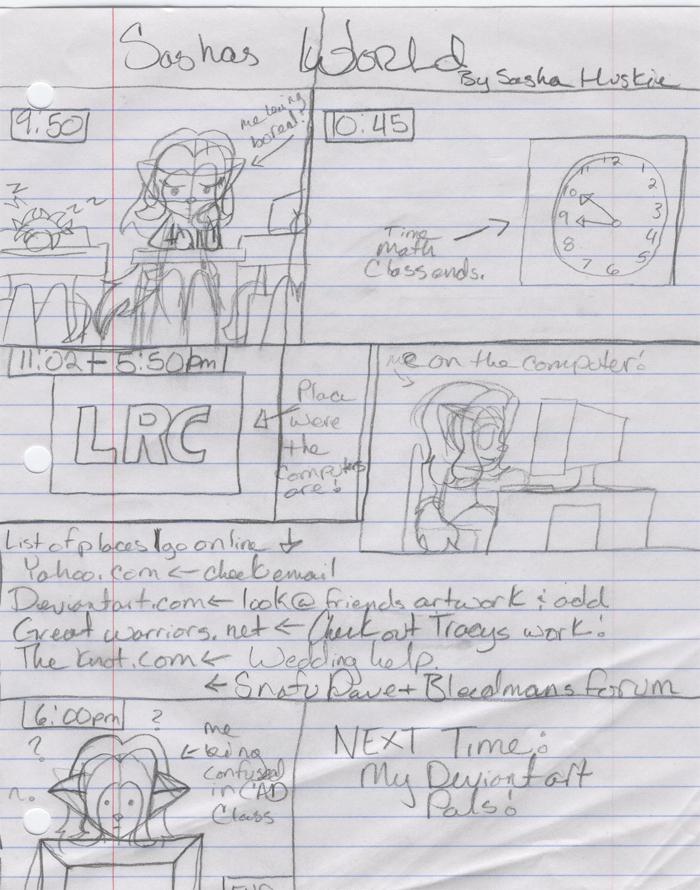 Sashas World
By Sasha Huskie
9:50
me being
bored!
z z z
10:45
Time
Math
Class ends.
11 12 1
10 2
9 3
8 4
7 6 5
11:02 - 5:50pm
LRC
Place
were
the
computers
are!
me on the computer!
List of places I go online ↓
Yahoo.com ← check email
Deviantart.com ← look @ friends artwork & add
Great warriors.net ← Check out Traeys work!
The knot.com ← Wedding help.
← Snafu Dave + Bleedmans forum
6:00pm
? ?
me
being
confused
in CAD
Class
NEXT Time:
My Deviantart
Pals!